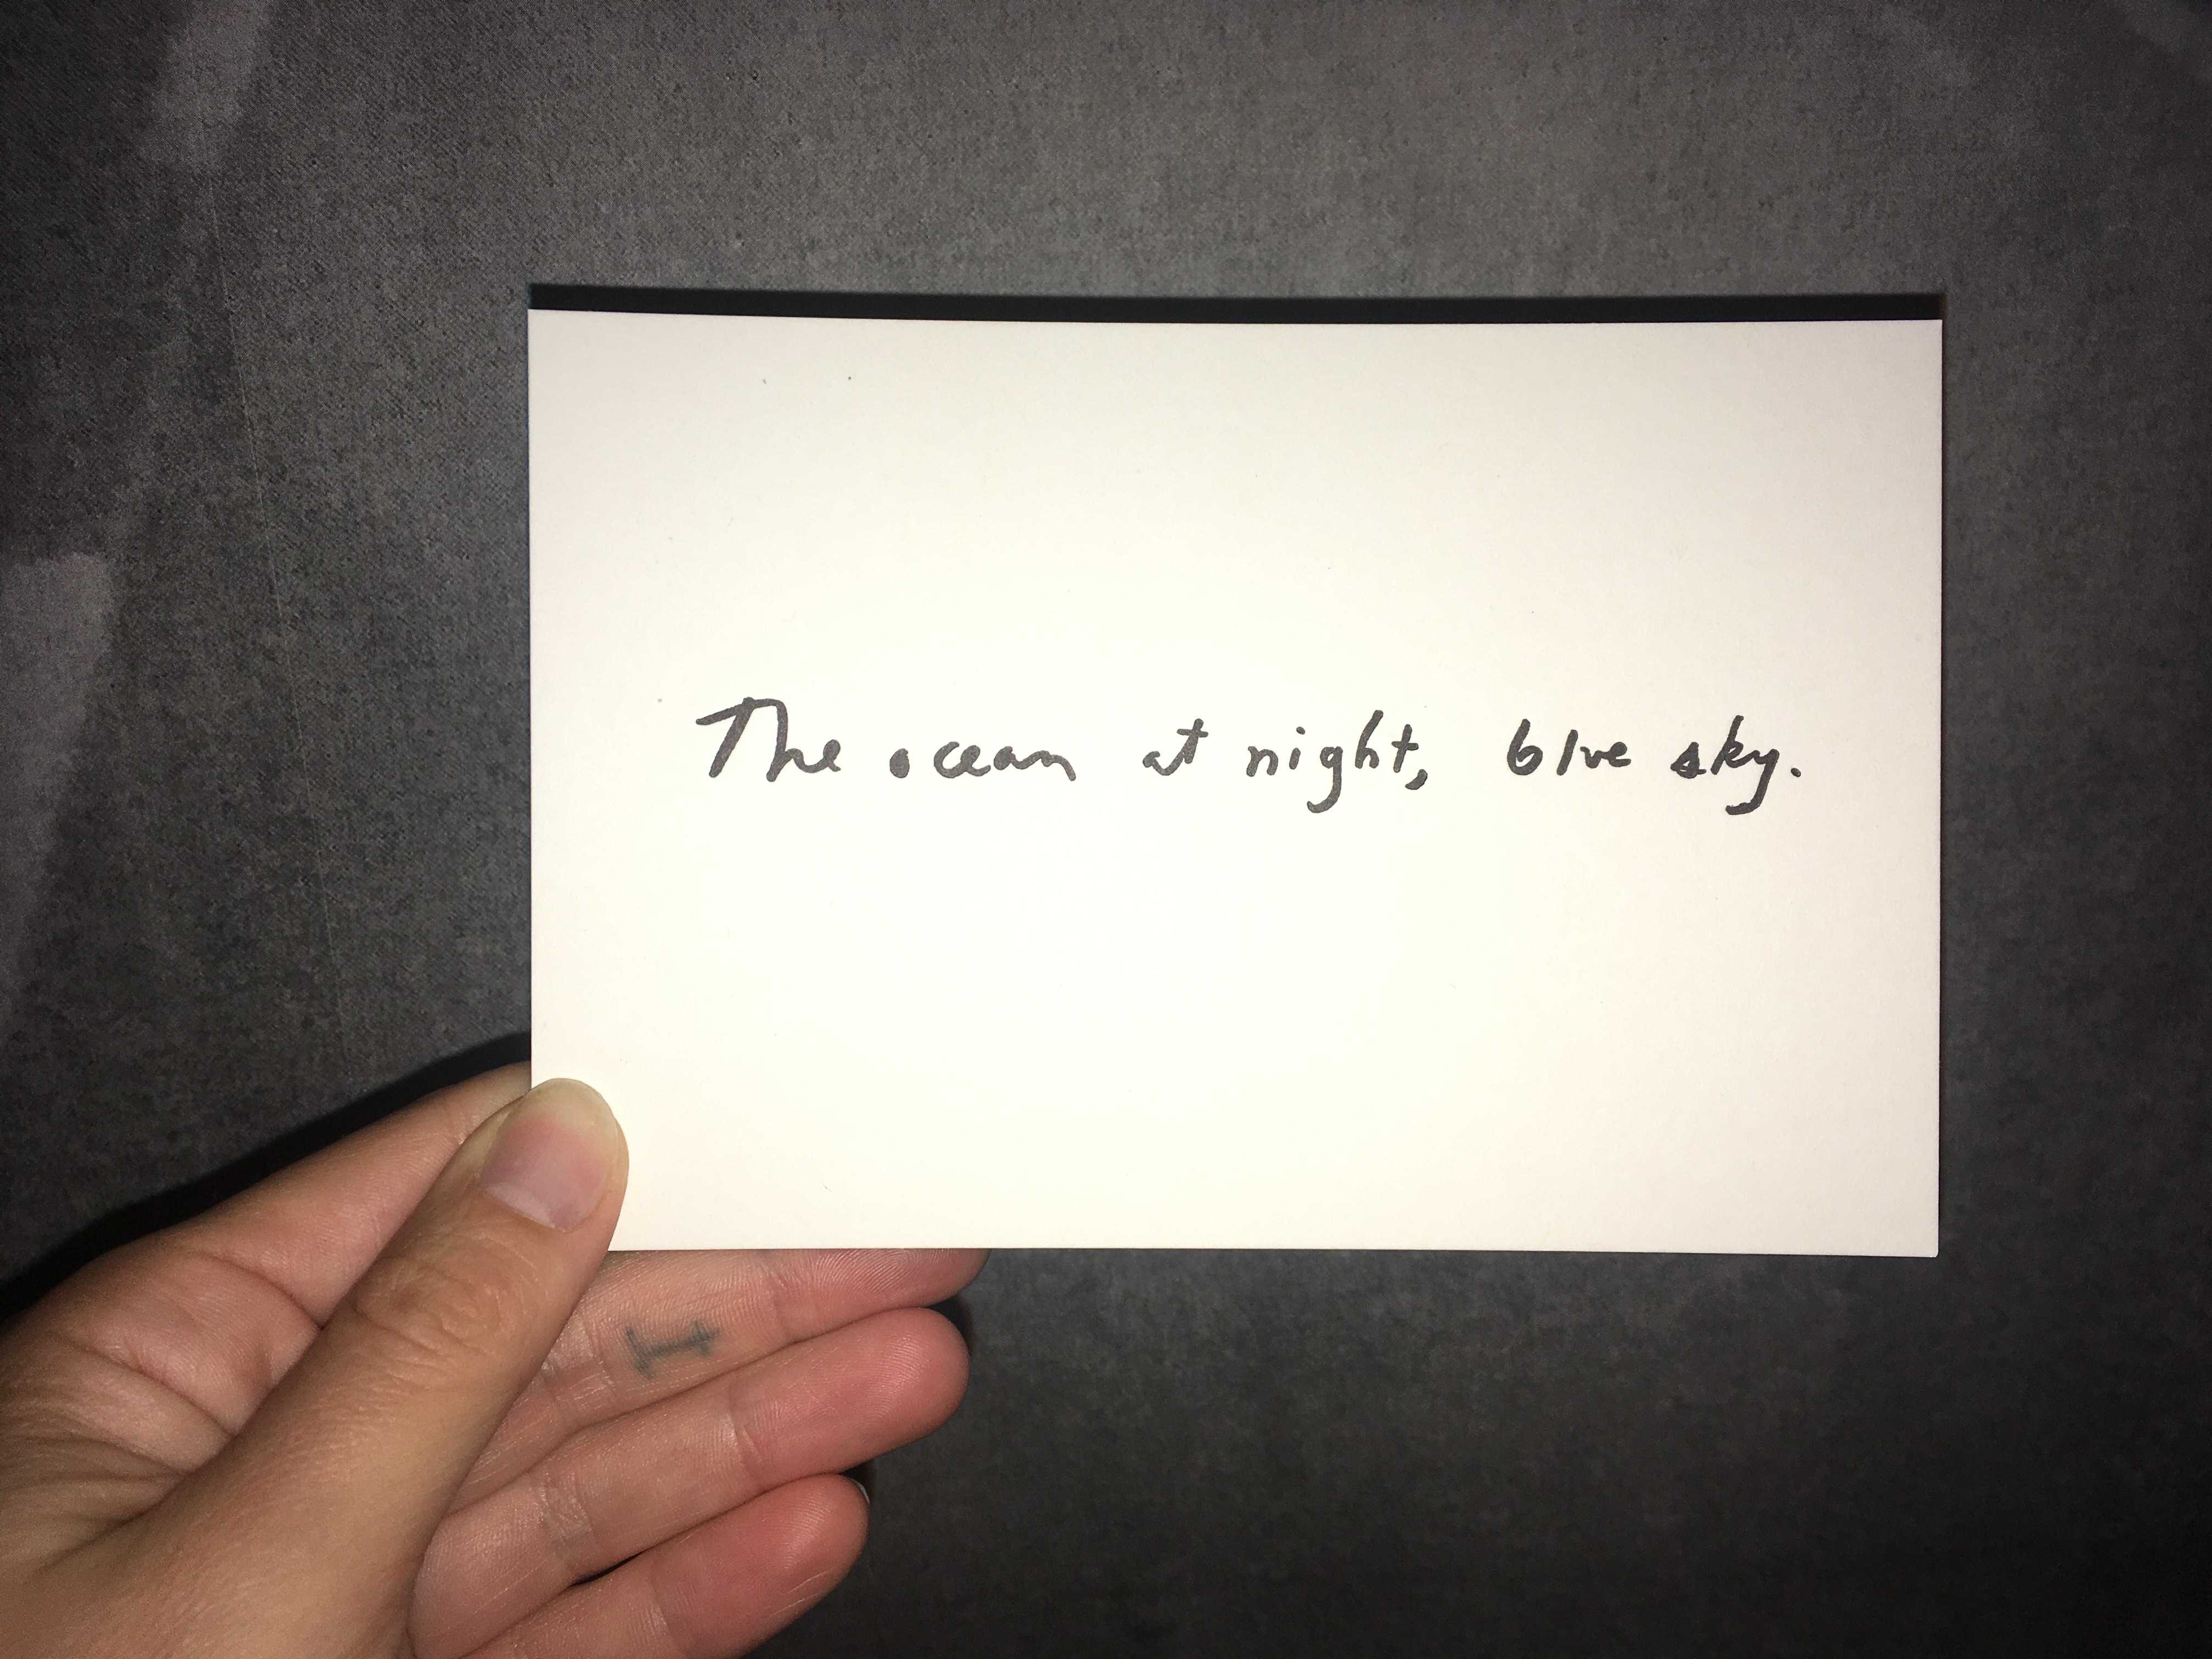 The ocean at night, blue sky.